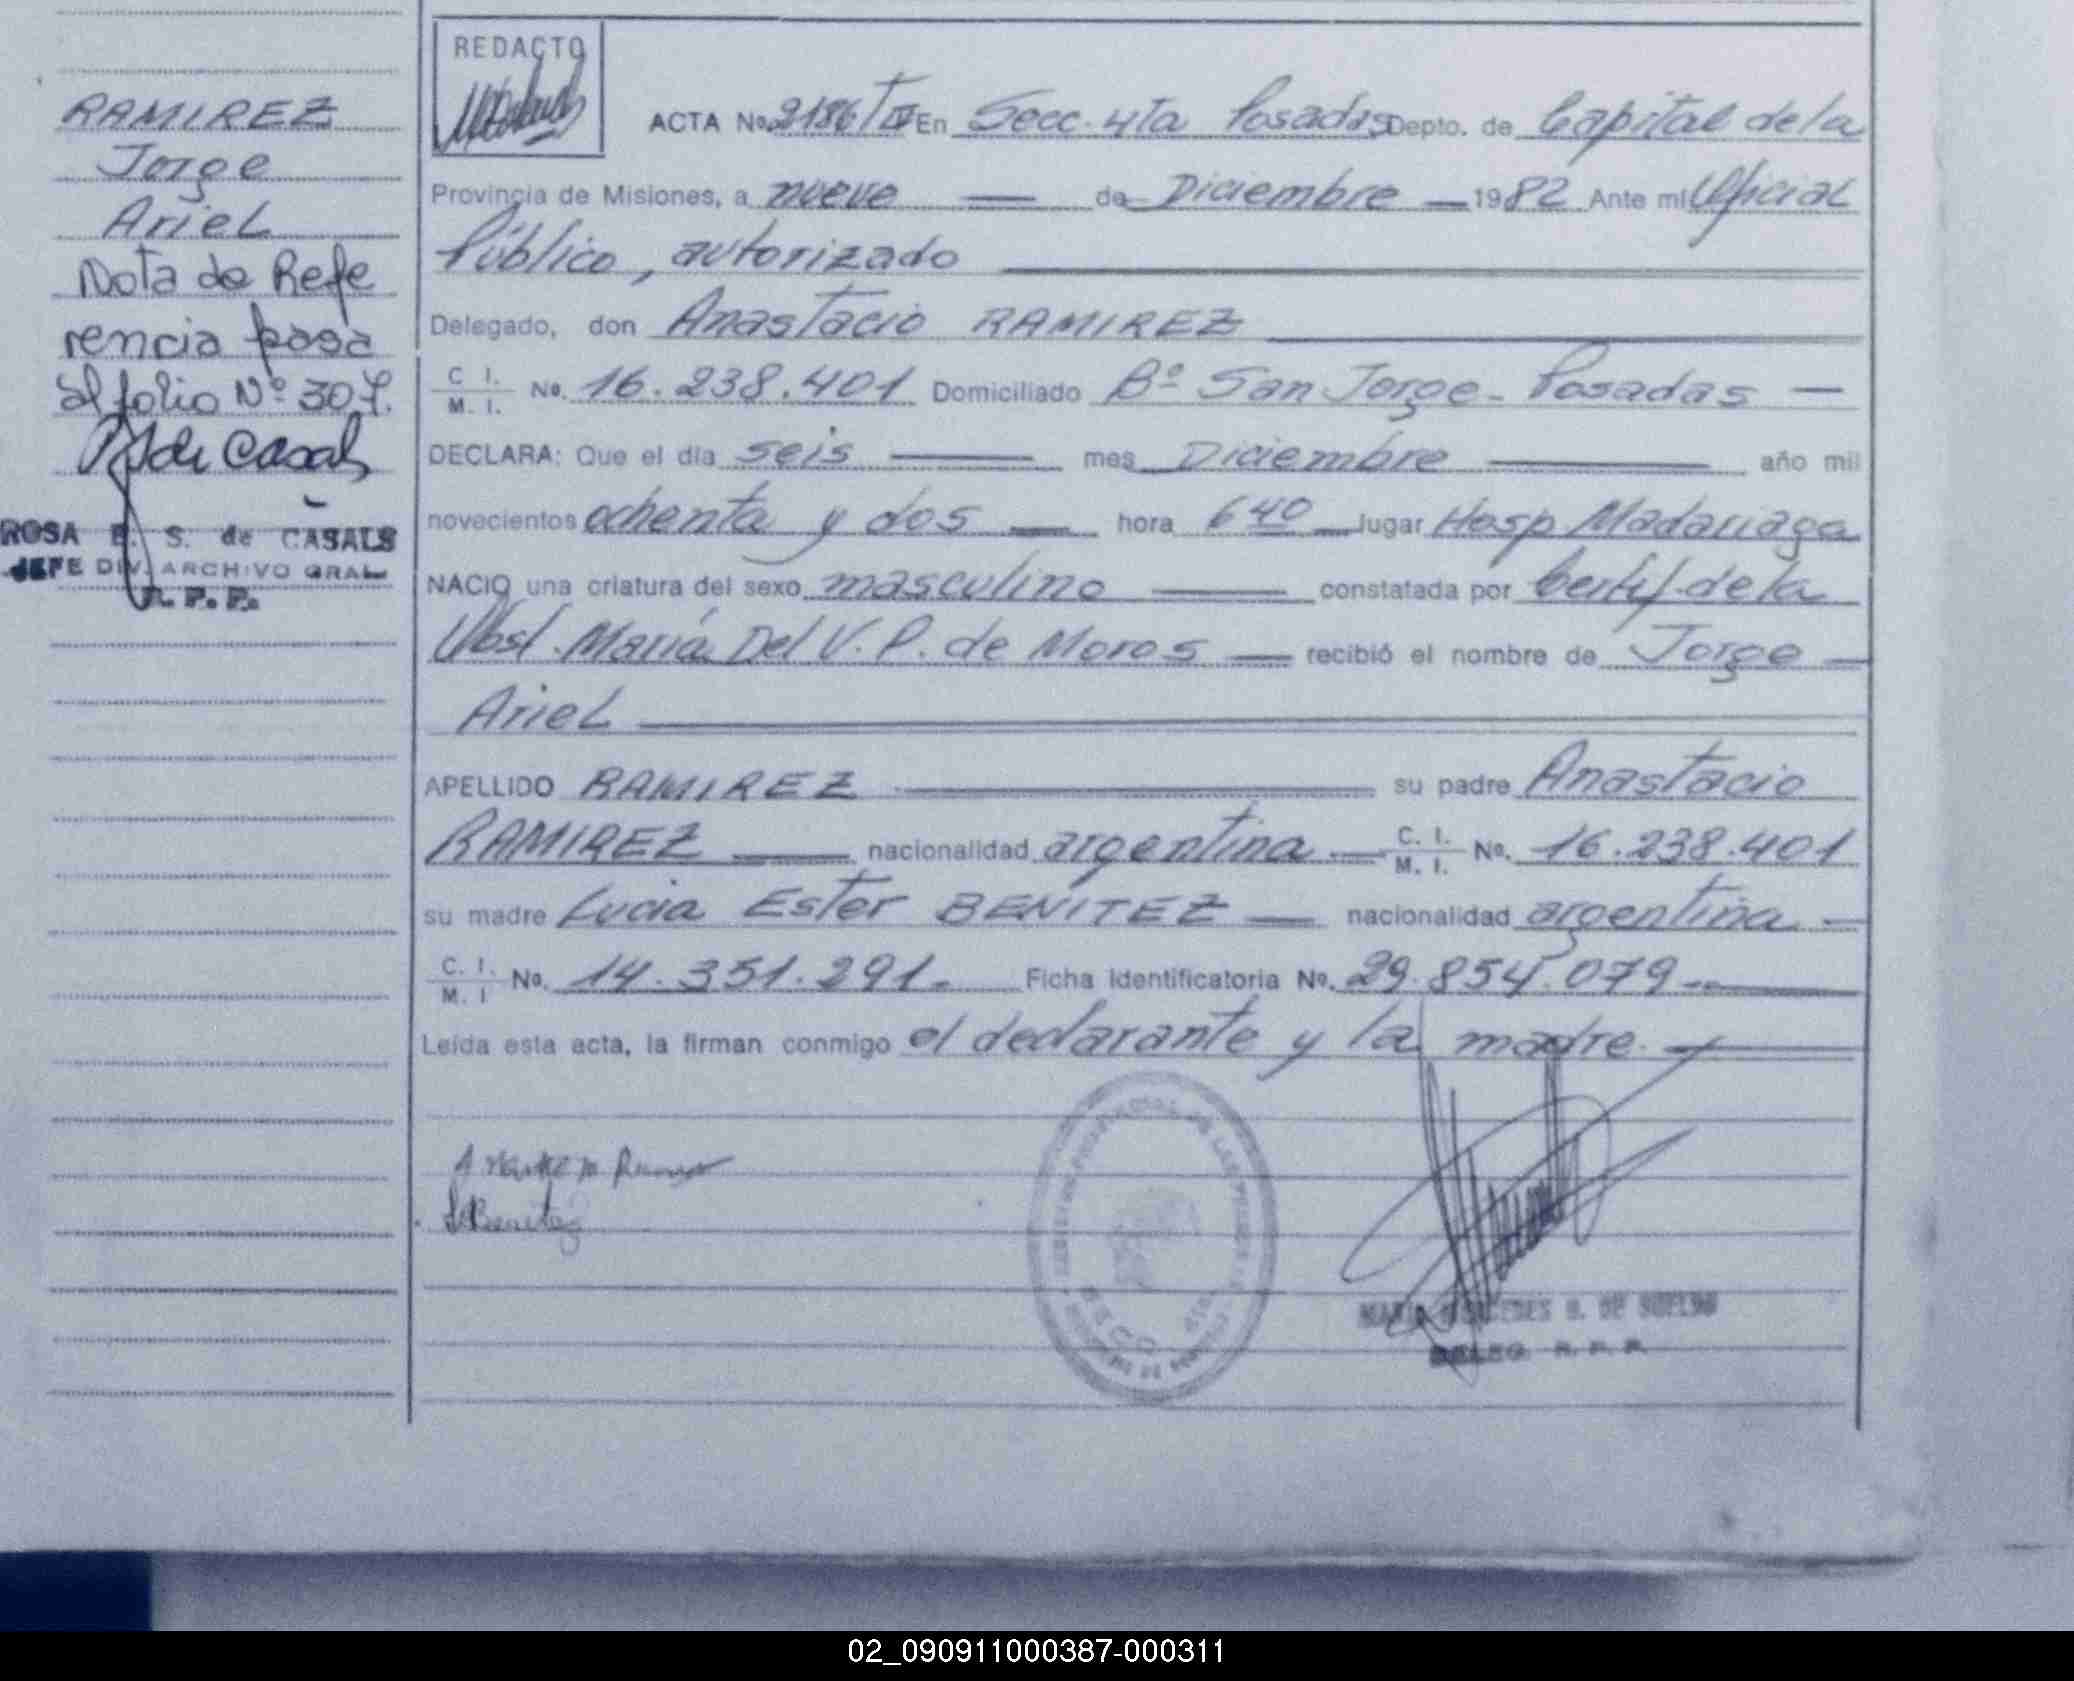 RAMIREZ
Jorge
Ariel
Nota de Refe
rencia pasa
al folio Nº 307.
ROSA E. S. de CASALS
JEFE DIV. ARCHIVO GRAL
R. P. P.
REDACTO
ACTA No. 2186/T III En Secc. 4ta Posadas Depto. de Capital de la
Provincia de Misiones, a nueve — de Diciembre — 1982 Ante mi Oficial
Público, autorizado
Delegado, don Anastacio RAMIREZ
C. I. / M. I. No. 16.238.401 Domiciliado Bº San Jorge - Posadas —
DECLARA: Que el día seis — mes Diciembre — año mil
novecientos ochenta y dos — hora 6 40 — lugar Hosp. Madariaga
NACIO una criatura del sexo masculino — constatada por Certif. de la
Obst. María Del V. P. de Moros — recibió el nombre de Jorge —
Ariel
APELLIDO RAMIREZ — su padre Anastacio
RAMIREZ — nacionalidad argentina — C. I. / M. I. No. 16.238.401
su madre Lucia Ester BENITEZ — nacionalidad argentina —
C. I. / M. I No. 14.351.291. Ficha Identificatoria No. 29.854.079 —
Leída esta acta, la firman conmigo el declarante y la madre. —
Benitez
DELEG. R. P. P.
02_090911000387-000311